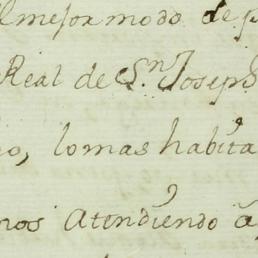 el mejor modo de p
Real de S.n Joseph
o, lomas habita
nos Atendiendo â